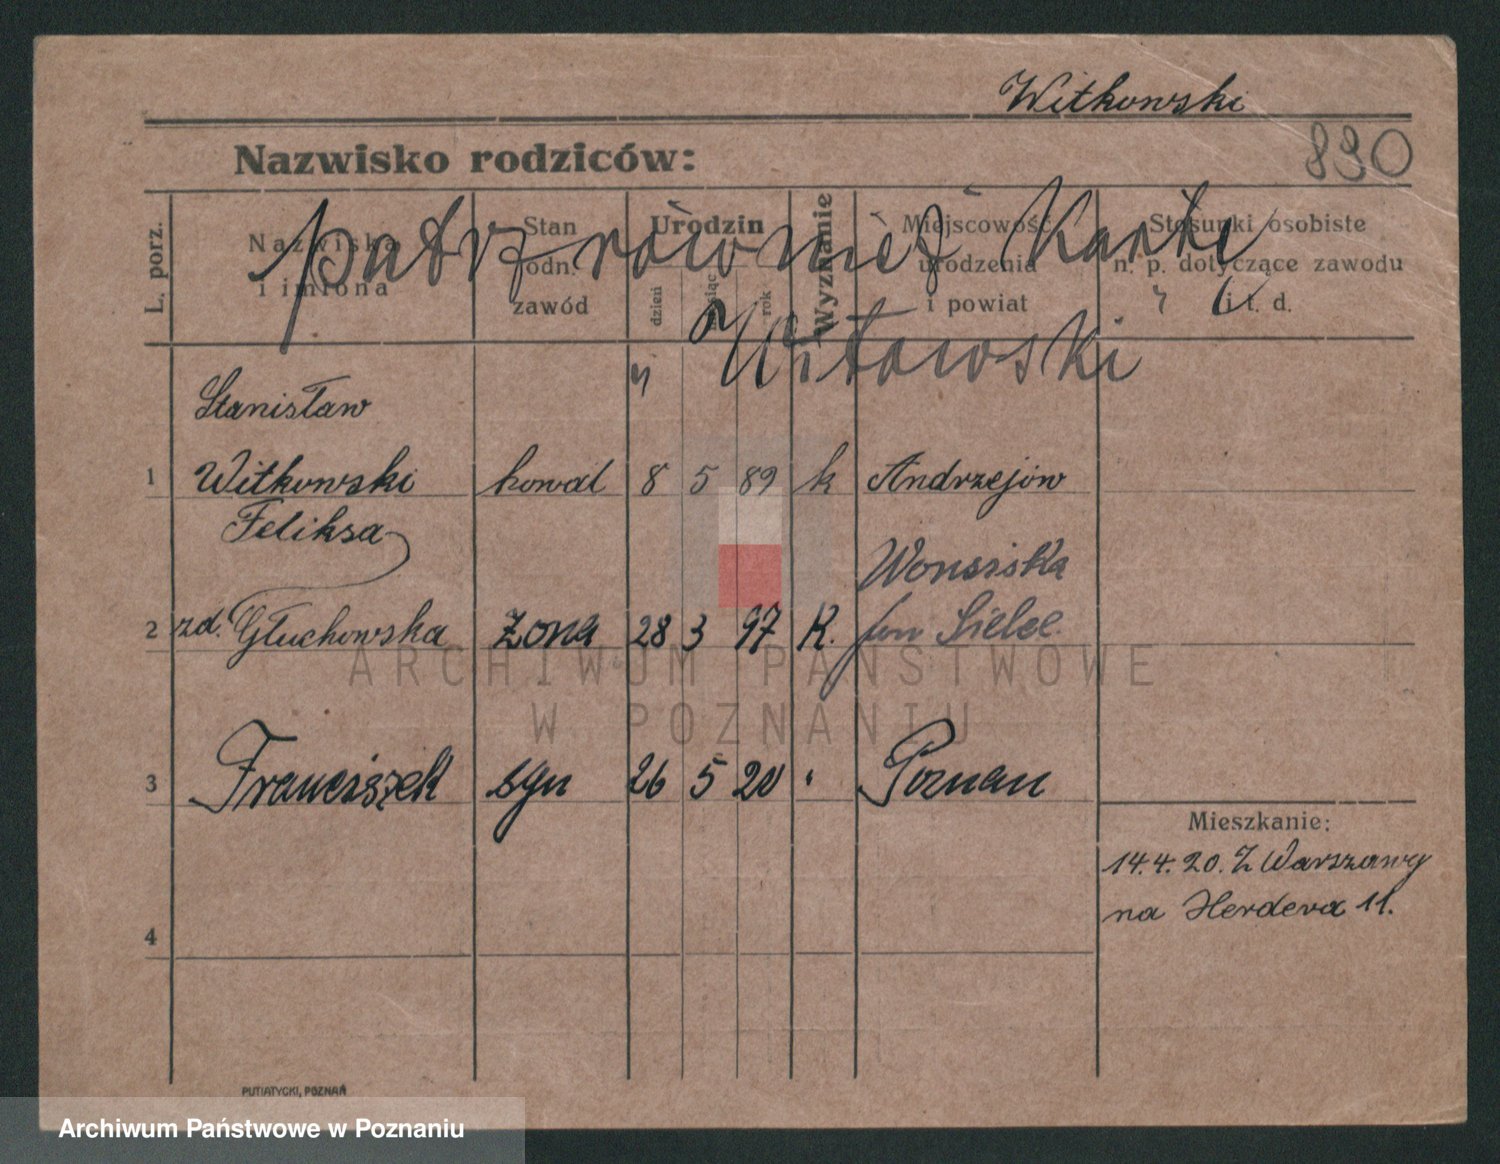 Witkowski
Nazwisko rodziców:
830
L. porz.
Nazwiska
i imiona
Stan
odn.
zawód
Urodzin
dzień
miesiąc
rok
Wyznanie
Miejscowość
urodzenia
i powiat
Stosunki osobiste
n. p. dotyczące zawodu
i t. d.
patrz również Kartę
Witowski
Stanisław
1 Witkowski kowal 8 5 89 k Andrzejów
Feliksa
2 zd. Głuchowska żona 28 3 97 K. Sielce
3 Franciszek syn 26 5 20 " Poznań
Mieszkanie:
14.4.20. Z Warszawy
na Herdera 11.
4
ARCHIWUM PAŃSTWOWE
W POZNANIU
PUTIATYCKI, POZNAŃ
Archiwum Państwowe w Poznaniu